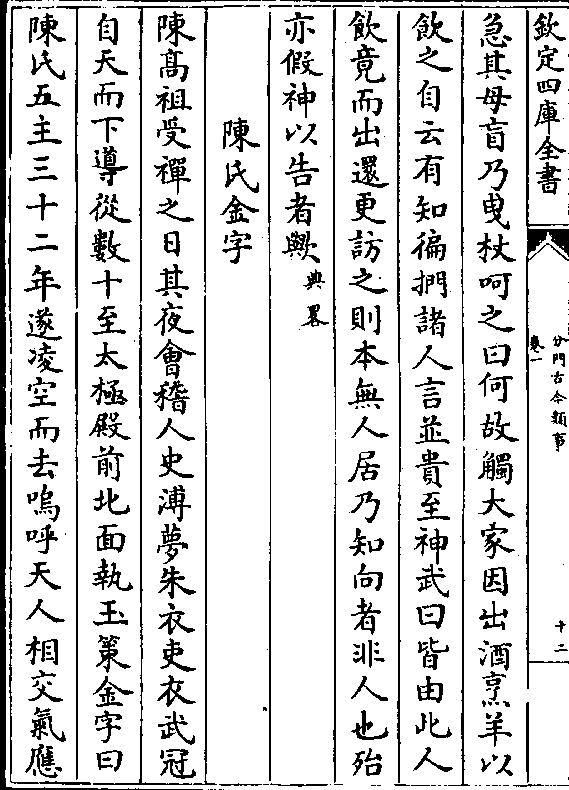 欽定四庫全書
分門古今類事
卷一
十二
急其母盲乃曵杖呵之曰何故觸大家因出酒烹羊以
飲之自云有知徧捫諸人言並貴至神武曰皆由此人
飲竟而出還更訪之則本無人居乃知向者非人也殆
亦假神以告者歟典畧
陳氏金字
陳髙祖受禪之日其夜會稽人史溥夢朱衣吏衣武冠
自天而下導從數十至太極殿前北面執玉策金字曰
陳氏五主三十二年遂凌空而去嗚呼天人相交氣應